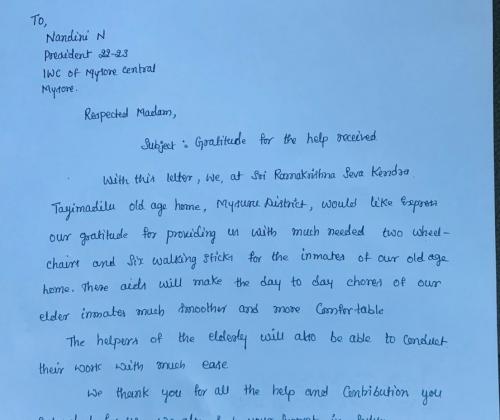 To,
Nandini N
President 22-23
IWC of Mysore Central
Mysore.
Respected Madam,
Subject : Gratitude for the help received
With this letter, we, at Sri Ramakrishna Seva Kendra
Tayimadilu old age home, Mysuru District, would like Express
our gratitude for providing us with much needed two wheel-
chairs and Six walking sticks for the inmates of our old age
home. These aids will make the day to day chores of our
elder inmates much smoother and more Comfortable
The helpers of the elderly will also be able to conduct
their work with much ease
We thank you for all the help and Contribution you